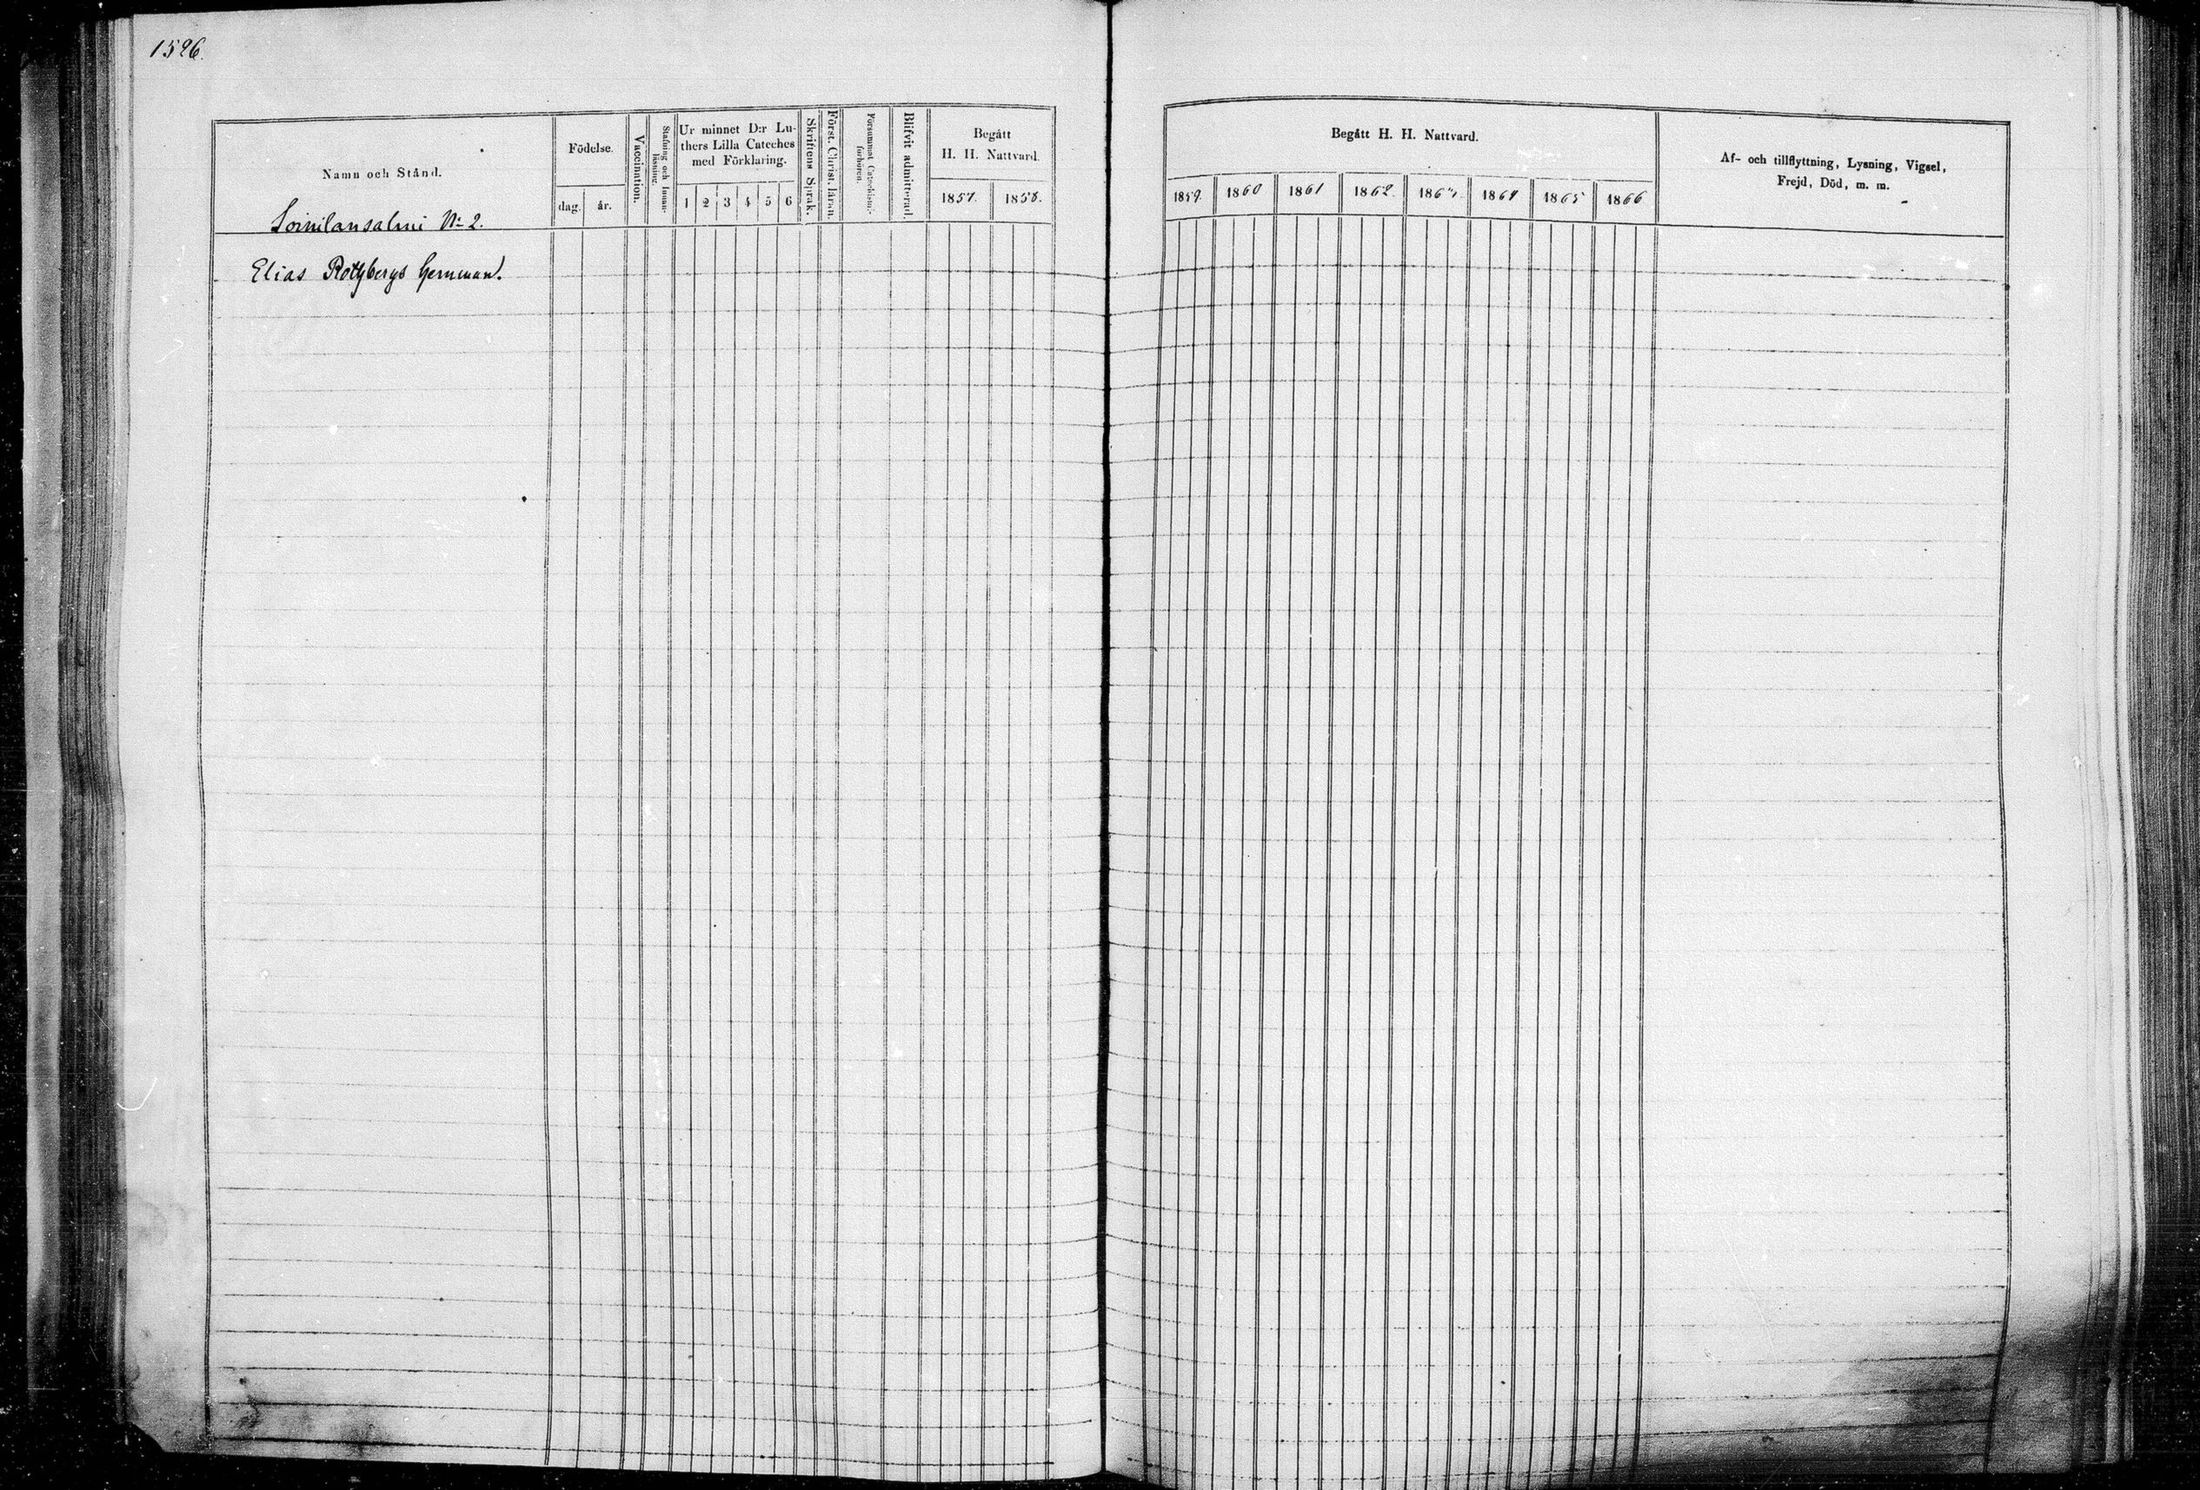 1526.
Namn och Stånd.
Födelse.
dag.
år.
Vaccination.
Stafning och Innan-
läsning.
Ur minnet D:r Lu-
thers Lilla Cateches
med Förklaring.
1 2 3 4 5 6
Skriftens Språk.
Först. Christ. läran.
Försummat Catechismi-
förhören.
Blifvit admitterad.
Begått
H. H. Nattvard.
1857. 1858.
Loinilansalmi No 2.
Elias Rothbergs hemman.
Begått H. H. Nattvard.
1859. 1860 1861 1862. 1863. 1864 1865 1866
Af- och tillflyttning, Lysning, Vigsel,
Frejd, Död, m. m.